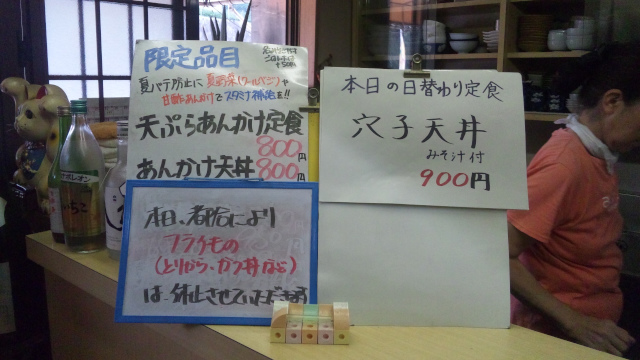 限定品目
夏バテ防止に夏野菜(ツールベジ)や
甘酢あんかけでスタミナ補給を!!
天ぷらあんかけ定食
800円
あんかけ天丼 800円
本日の日替わり定食
穴子天丼
みそ汁付
900円
本日、都合により
フライもの
(とりから、カツ丼など)
は休止させていただきます
いいちこ